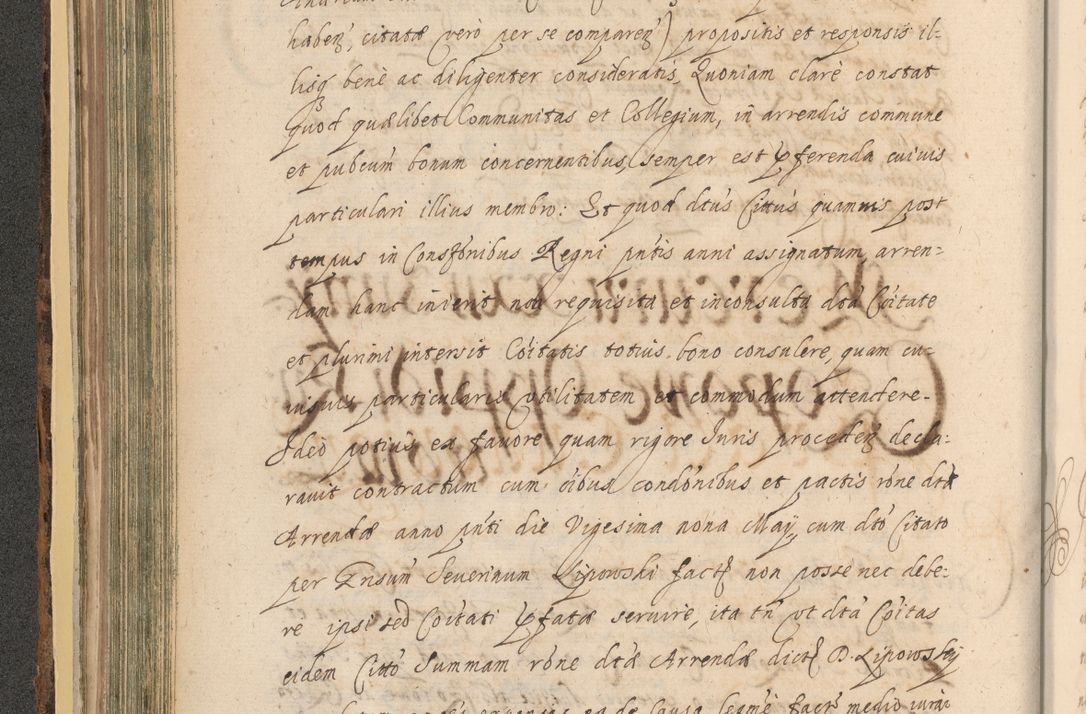 habenꝫ, citatæ verò per se comparenꝫ) propositis et responsis il-
lisqꝫ benè ac diligenter consideratis, Quoniam clarè constat
quod quælibet Communitas et Collegium, in arrendis commune
et pubcum bonum concernentibus, semper est pferenda cuiuis
particulari illius membro: Et quod dtus Cittus quamuis post
tempus in Constonibus Regni pntis anni assignatum, arren-
dam hanc inierit, non requisita et inconsulta dta Coitate
et plurimi intersit Coitatis totius bono consulere, quam cu-
iusuis particularis vtilitatem et commodum attendere-
Ideò potius ex fauore quam rigore Iuris procedenꝫ decla-
rauit contractum cum oibus condonibus et pactis rone dta
Arrendæ anno pnti die Vigesima nona Maij, cum dto Citato
per Gnsum Seuerinum Lipowski fact non posse nec debe-
re ipsi sed Coitati pfatæ seruire, ita tn vt dta Coitas
eidem Citto Summam rone dtæ Arrendæ dict D. Lipowskij